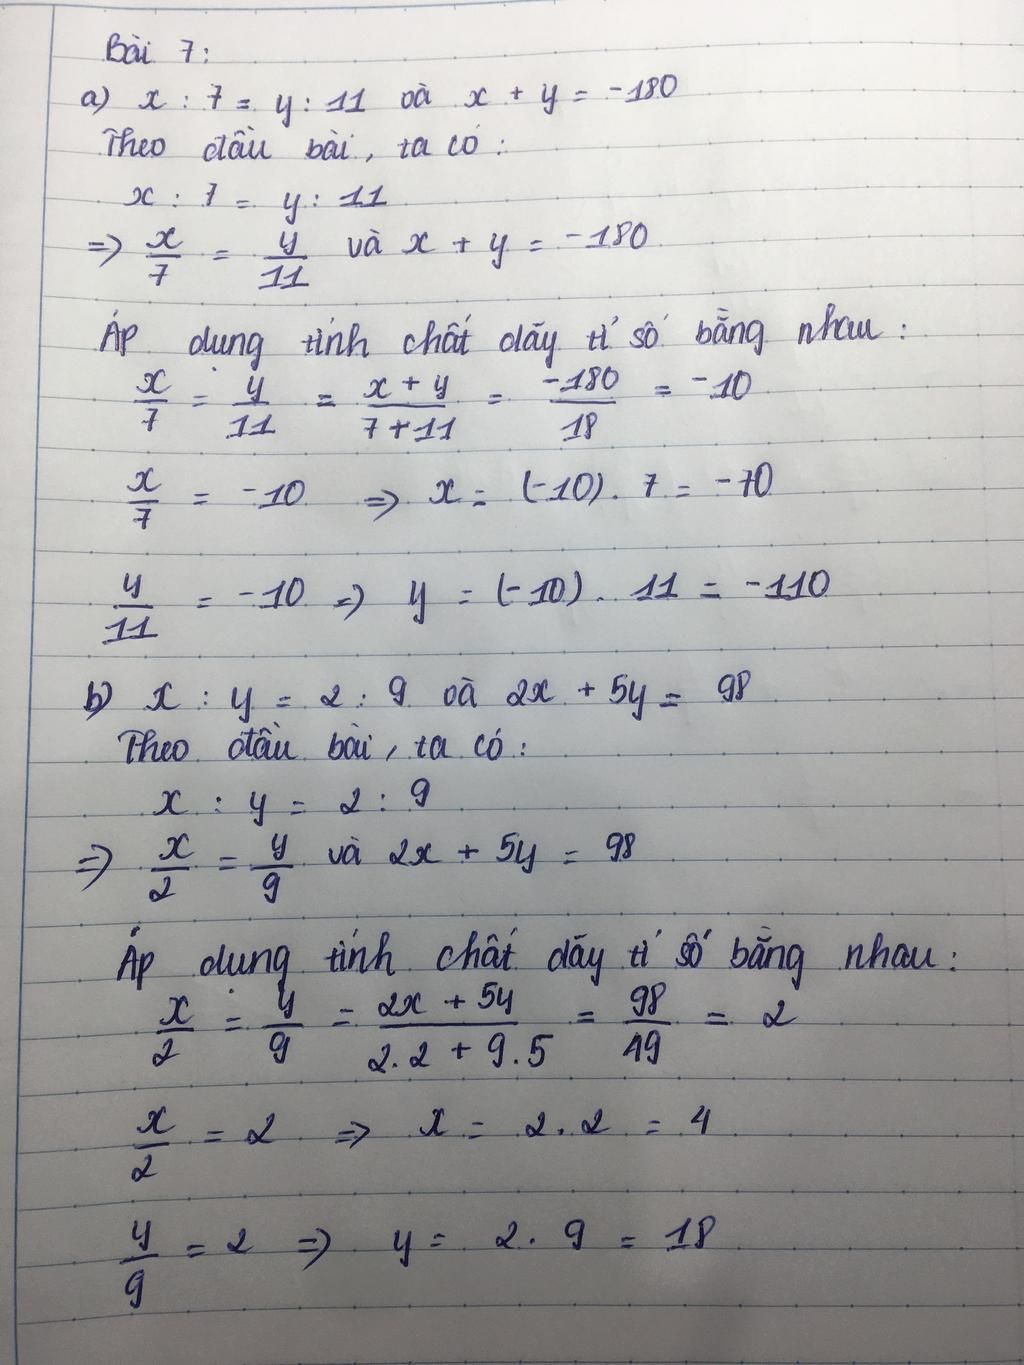 Bài 7:
a) x : 7 = y : 11 và x + y = -180
Theo đầu bài, ta có:
x : 7 = y : 11
=> x/7 = y/11 và x + y = -180
Áp dụng tính chất dãy tỉ số bằng nhau:
x/7 = y/11 = (x + y)/(7 + 11) = -180/18 = -10
x/7 = -10 => x = (-10). 7 = -70
y/11 = -10 => y = (-10). 11 = -110
b) x : y = 2 : 9 và 2x + 5y = 98
Theo đầu bài, ta có:
x : y = 2 : 9
=> x/2 = y/9 và 2x + 5y = 98
Áp dụng tính chất dãy tỉ số bằng nhau:
x/2 = y/9 = (2x + 5y)/(2.2 + 9.5) = 98/49 = 2
x/2 = 2 => x = 2.2 = 4
y/9 = 2 => y = 2.9 = 18